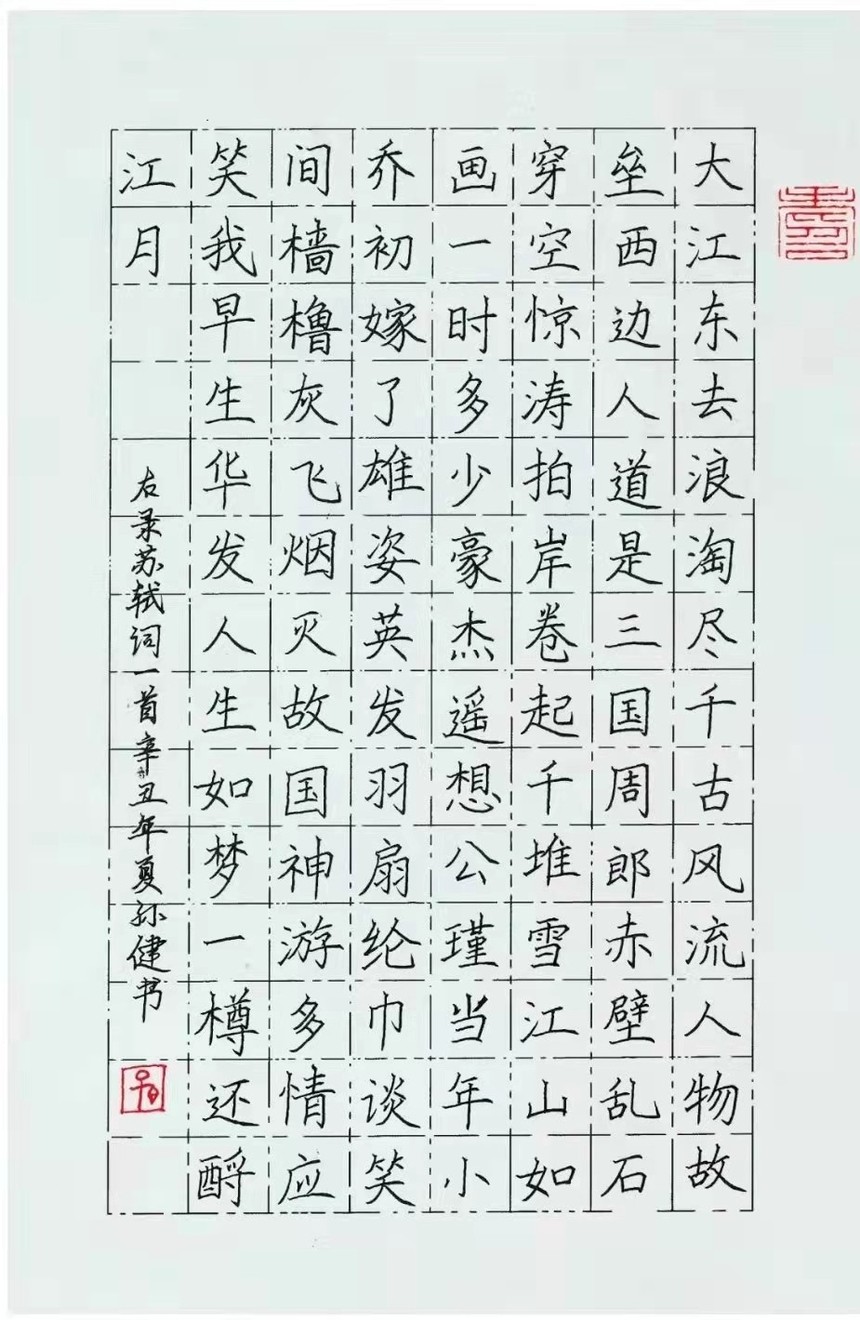 大江东去浪淘尽千古风流人物故
垒西边人道是三国周郎赤壁乱石
穿空惊涛拍岸卷起千堆雪江山如
画一时多少豪杰遥想公瑾当年小
乔初嫁了雄姿英发羽扇纶巾谈笑
间樯橹灰飞烟灭故国神游多情应
笑我早生华发人生如梦一樽还酹
江月
右录苏轼词一首辛丑年夏孙健书